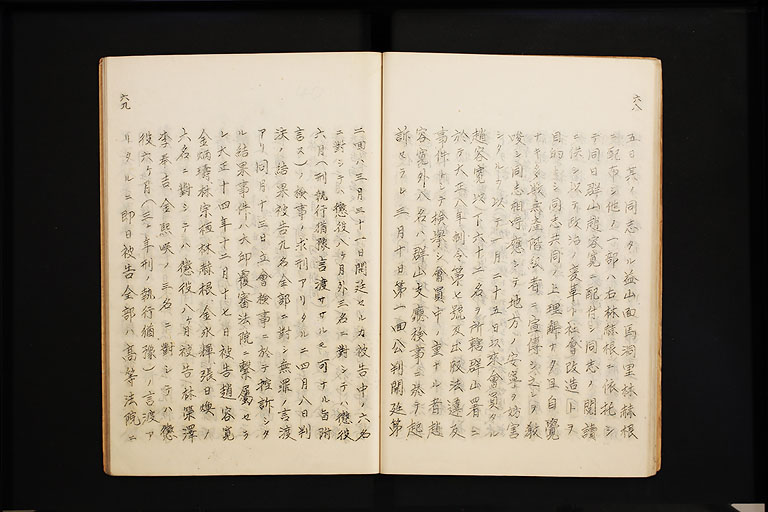 六八
五日其ノ同志タル益山面馬洞里林赫根
ニ配布シ他ノ一部ハ右林赫根ニ依托シ
テ同日群山趙容寬ニ配付シ同志ノ閱讀
ニ供シ以テ政治ノ變革ト社會改造トヲ
目的シ同志共同ノ上理解アリ且自覺
ナキ無產階級者ニ宣傳シ之レヲ敎
唆シ同志相呼應シテ地方ノ安寧ヲ妨害
シタ以テ一月二十五日以來會員
趙容寬以下六十二名ヲ所轄群山署ニ
於テ大正八年制令第七號及出版法違反
事件トシテ檢擧シ會員中ノ重ナル者趙
容寬外八名ハ群山支廳檢事ニ於テ起
訴セラレ三月十日第一回公判開廷第
六九
二回ハ三月三十一日開廷セルカ被告中ノ六名
ニ對シテハ懲役八ヶ月外三名ニ對シテハ懲役
六月(刑執行猶豫言渡サルモ可ナル旨附
言ス)ノ檢事ノ求刑アリタルニ四月八日判
決ノ結果被告九名全部ニ對シ無罪ノ言渡
アリ同月十三日立會檢事ニ於テ控訴シタ
ル結果事件ハ大邱覆審法院ニ繫屬セラ
レ大正十四年十二月十七日被告趙容寬
金炳璹林宗桓林赫根金永輝張日煥ノ
六名ニ對シテハ懲役八ヶ月被告林榮澤
李奉吉金熙暎ノ三名ニ對シテハ懲
役六ヶ月(三ヶ年刑ノ執行猶豫)ノ言渡ア
リタルニ卽日被告全部ハ高等法院ニ